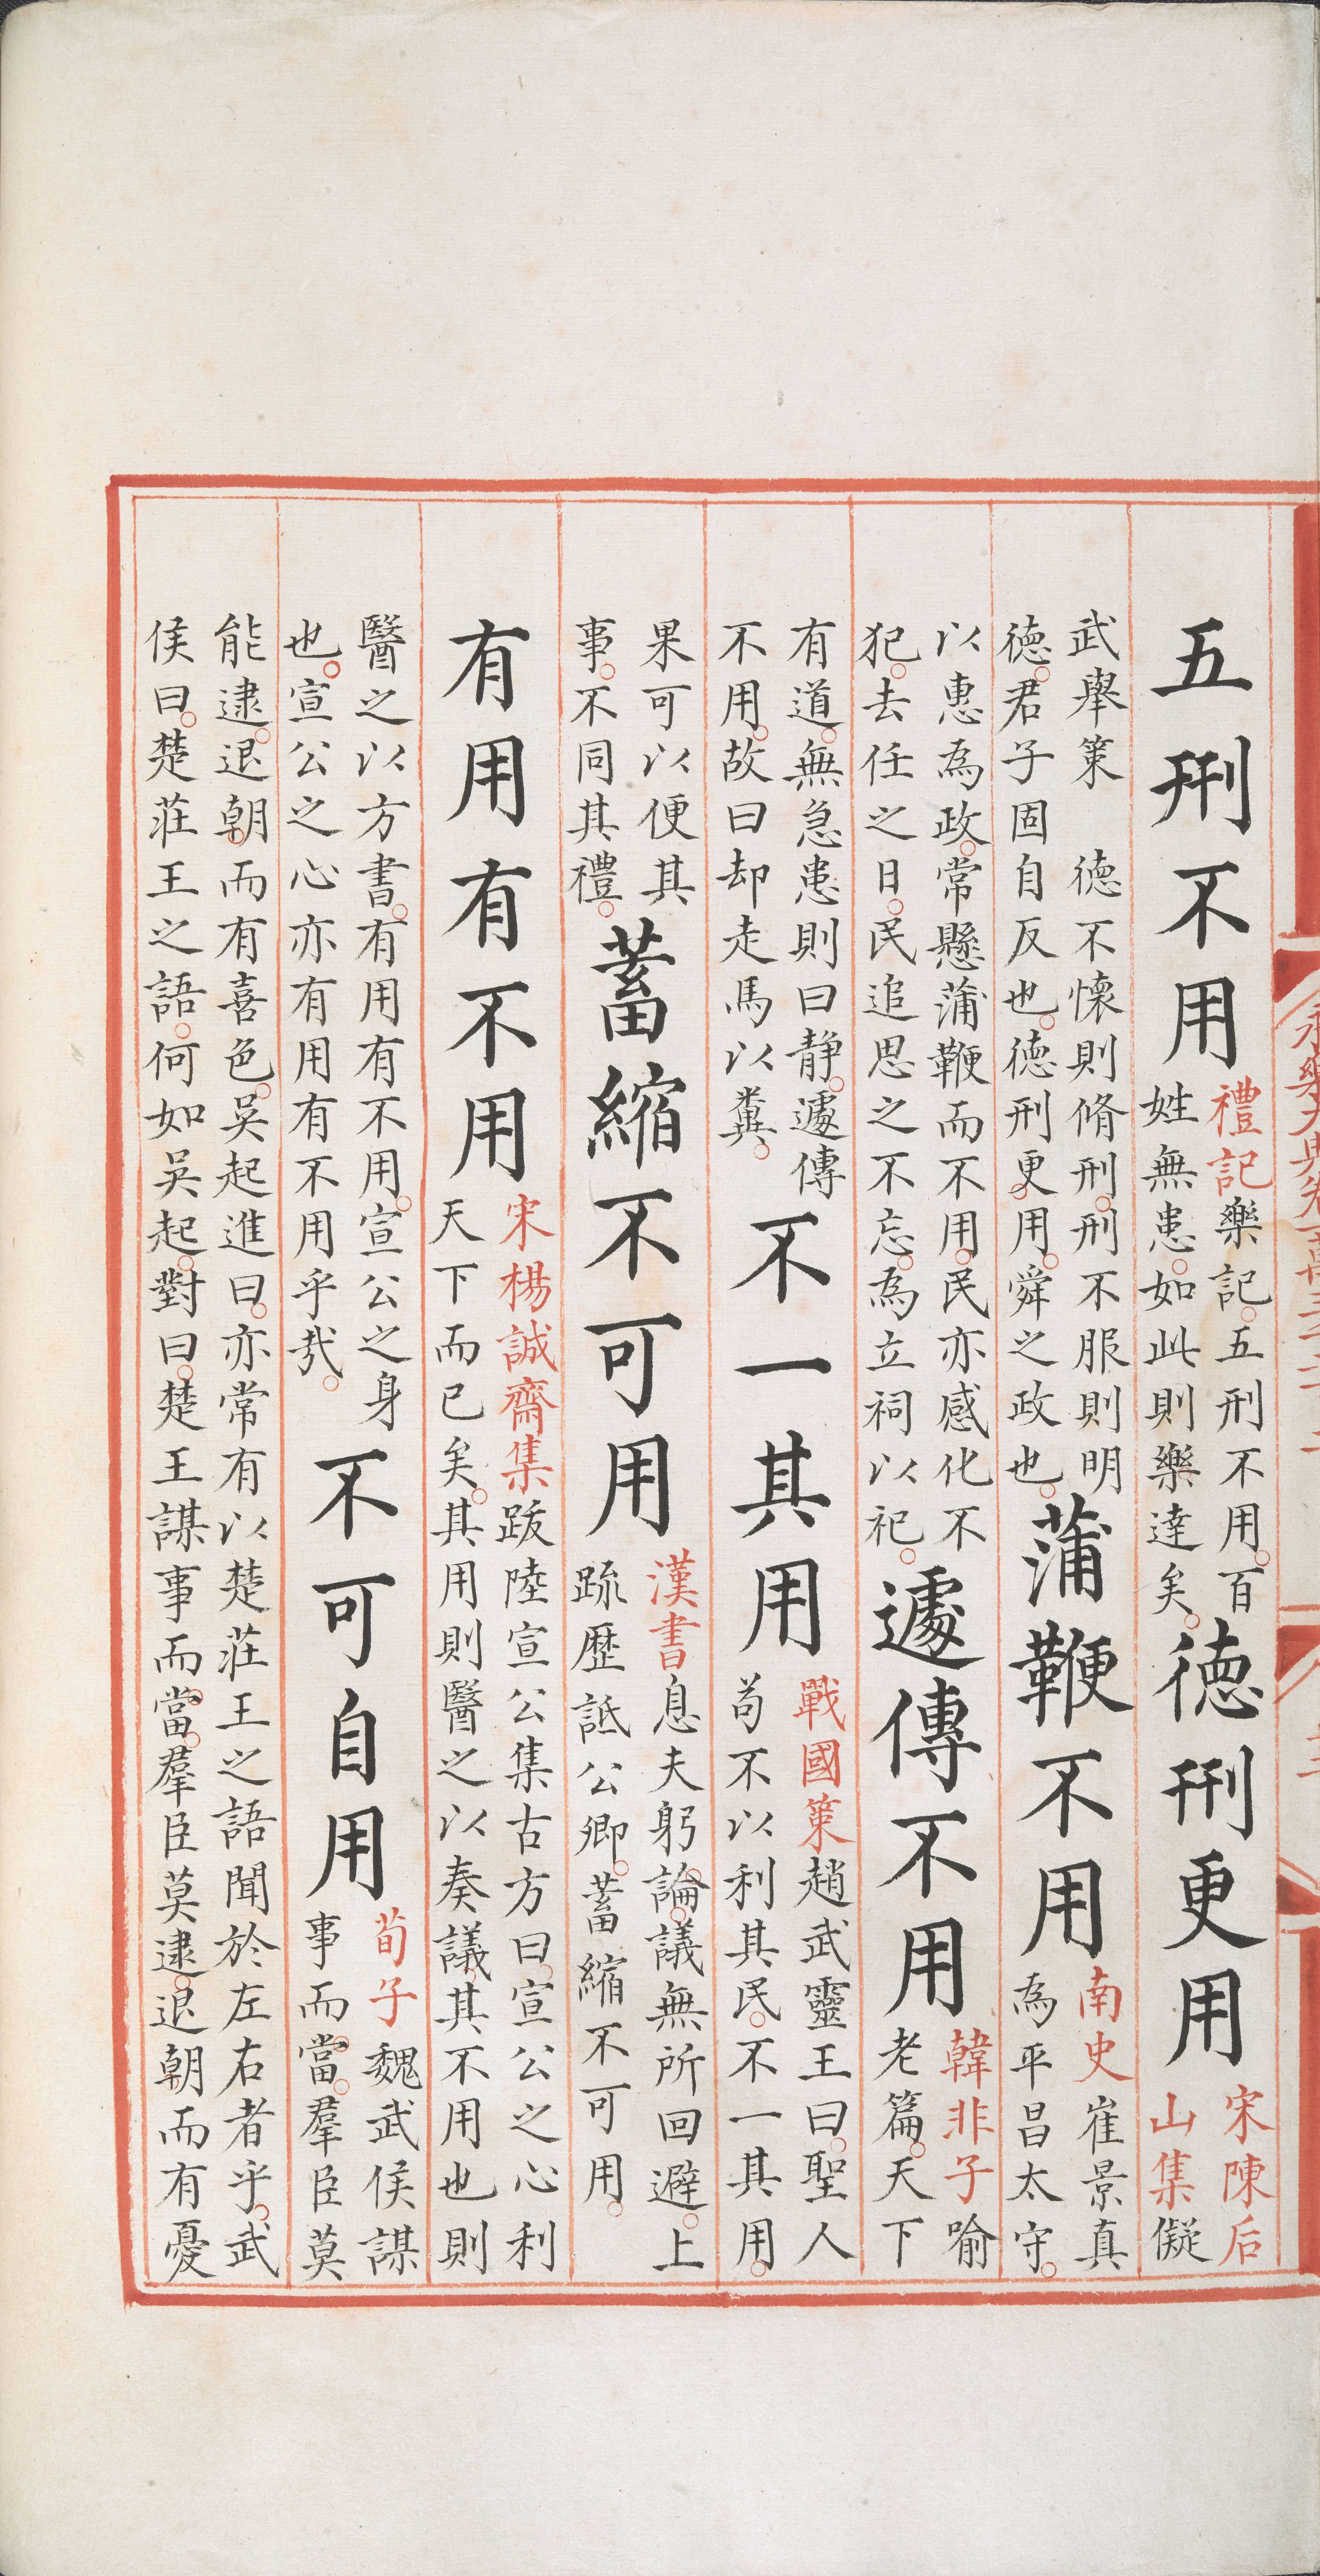 五刑不用
禮記樂記。五刑不用。百
姓無患。如此則樂達矣。
德刑更用
宋陳后
山集儗
武舉策　德不懷則脩刑。刑不服則明
德。君子固自反也。德刑更用。舜之政也。
蒲鞭不用
南史崔景真
為平昌太守。
以惠為政。常懸蒲鞭而不用。民亦感化不
犯。去任之日。民追思之不忘。為立祠以祀。
遽傳不用
韓非子喻
老篇。天下
有道。無急患則曰静。遽傳
不用。故曰却走馬以糞。
不一其用
戰國策趙武靈王曰。聖人
苟不以利其民。不一其用。
果可以便其
事。不同其禮。
蓄縮不可用
漢書息夫躬論。議無所回避。上
疏歷詆公卿。蓄縮不可用。
有用有不用
宋楊誠齋集跋陸宣公集古方曰。宣公之心利
天下而已矣。其用則醫之以奏議。其不用也則
醫之以方書。有用有不用。宣公之身
也。宣公之心亦有用有不用乎哉。
不可自用
荀子魏武侯謀
事而當。羣臣莫
能逮。退朝而有喜色。吳起進曰。亦常有以楚莊王之語聞於左右者乎。武
侯曰。楚莊王之語。何如吳起。對曰。楚王謀事而當。羣臣莫逮。退朝而有憂
永樂大典卷